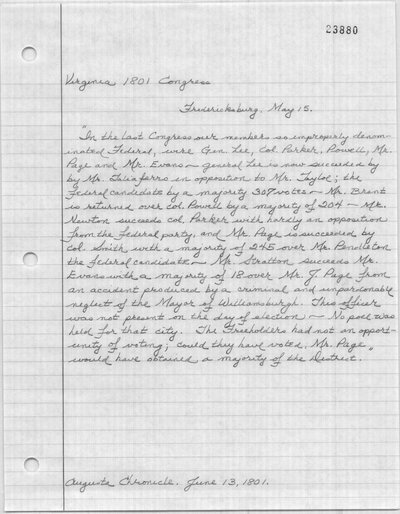 23880
Virginia 1801 Congress
Fredericksburg, May 15.
"In the last Congress our members so improperly denom-
inated Federal, were Gen. Lee, Col. Parker, Powell, Mr.
Page and Mr. Evans ~ General Lee is now succeeded by
by Mr. Taliaferro in opposition to Mr. Taylor; the
Federal candidate by a majority 307 votes ~ Mr. Brent
is returned over Col. Powell by a majority of 204 ~ Mr.
Newton succeeds Col Parker with hardly an opposition
from the Federal party, and Mr. Page is succeeded by
Col. Smith with a majority of 245 over Mr. Pendleton
the federal candidate ~ Mr. Stratton succeeds Mr.
Evans with a majority of 18 over Mr. J. Page from
an accident produced by a criminal and unpardonable
neglect of the Mayor of Williamsburgh. This officer
was not present on the day of election ~ No poll was
held for that city. The Freeholders had not an opport-
unity of voting; could they have voted, Mr. Page
would have obtained a majority of the District."
Augusta Chronicle. June 13, 1801.